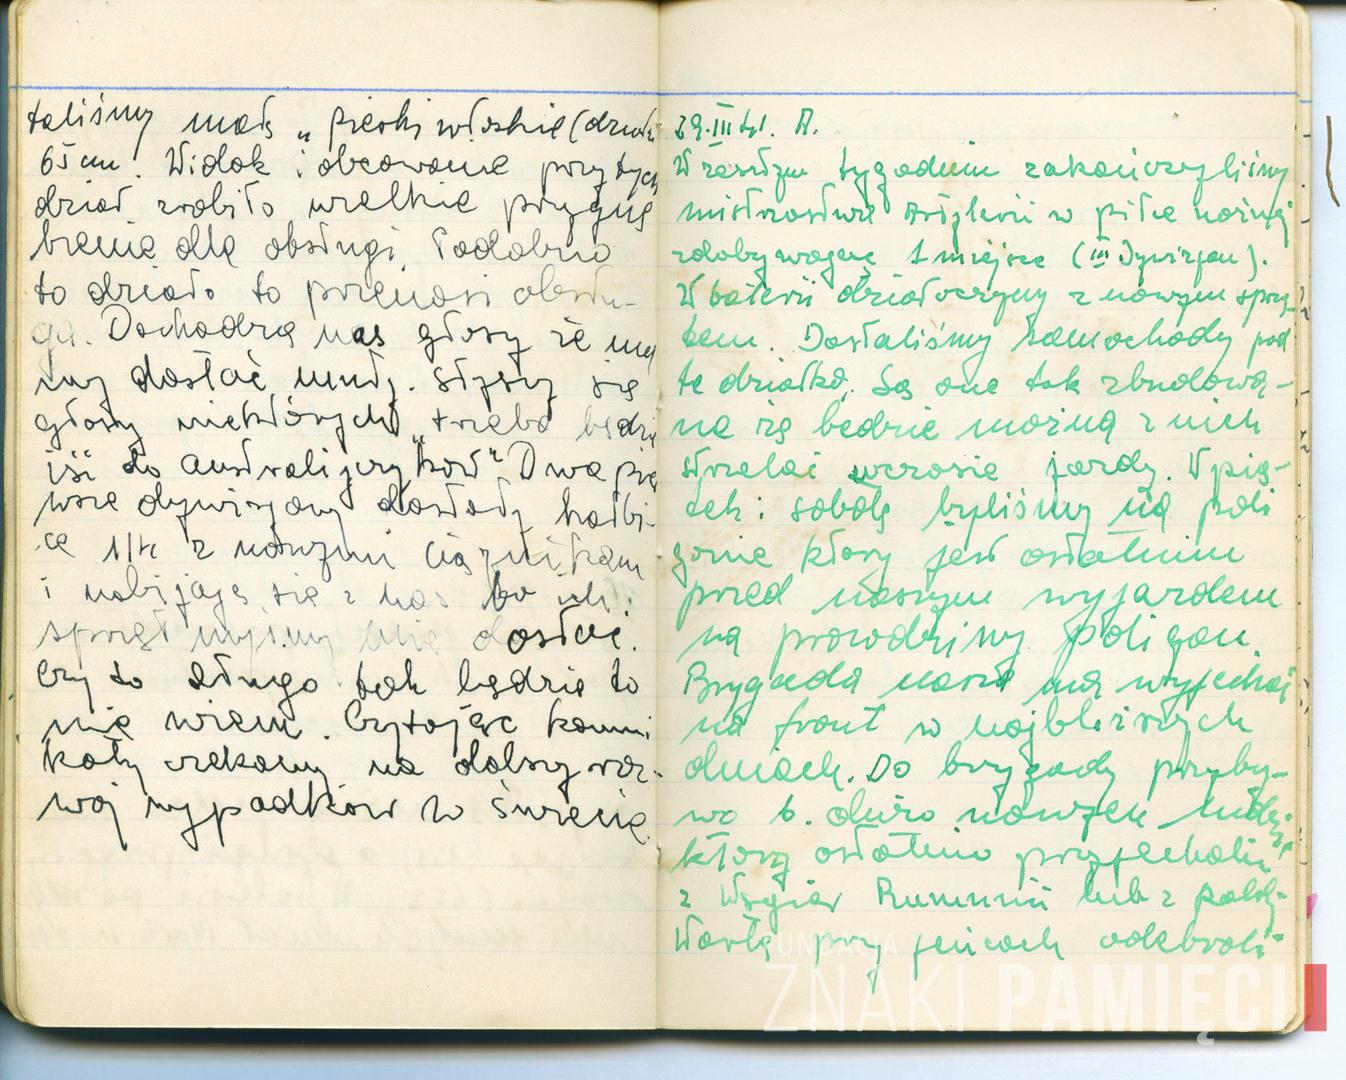 taliśmy małe „pieski włoskie (działa
65 cm. Widok i obcowanie przy tych
dział zrobiło wielkie przygnę
bienie dla obsługi. Podobno
to działo to przenosi obsłu-
ga. Dochodzą nas głosy że ma
my dostać muły. Słyszy się
głosy niektórych „trzeba będzie
iść do australijczyków" Dwa pier
wsze dywizjony dostały haubi-
ce z nowymi ciągnikami
i nabijają się z nas bo ich
sprzęt myśmy mie dostać.
Czy to długo tak będzie to
nie wiem. Czytając komuni
katy czekamy na dalszy roz-
wój wypadków w świecie
29.III 41. A.
W zeszłym tygodniu zakończyliśmy
mistrzostwa Artylerii w piłce nożnej
zdobywając 1 miejsce (III Dywizjon).
W baterii działoczyny z nowym sprzę
tem. Dostaliśmy samochody pod
te działka. Są one tak zbudowa-
ne że będzie można z nich
strzelać wczasie jazdy. W pią-
tek i sobotę byliśmy na poli
gonie który jest ostatnim
przed naszym wyjazdem
na prawdziwy poligon.
Brygada nasza ma wyjechać
na front w najbliższych
dniach. Do brygady przyby-
wa b. dużo nowych ludzi
którzy ostatnio przyjechali
z Węgier Rumunii lub z
Wartę przy jeńcach odebrali
FUNDACJA
ZNAKI PAMIĘCI